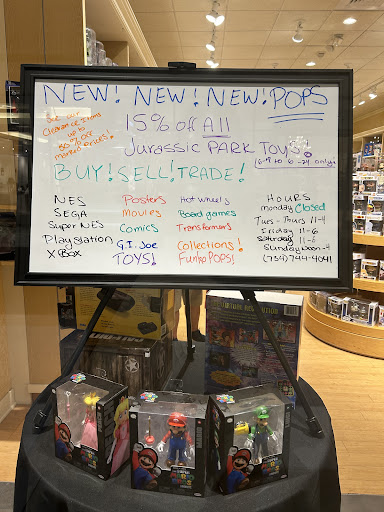 NEW! NEW! NEW! POPS
See our
Clearance Items
up to
50% OFF
marked prices!
15% off All
Jurassic PARK Toys
BUY! SELL! TRADE!
NES
SEGA
Super NES
Playstation
X Box
Posters
Movies
Comics
G.I. Joe
TOYS!
Hot wheels
Board games
Transformers
Collections!
Funko POPS!
HOURS
monday Closed
Tues - Thurs 11-4
Friday 11-6
Saturday 11-6
Sunday noon-4
(734) 744-4041
MARIO